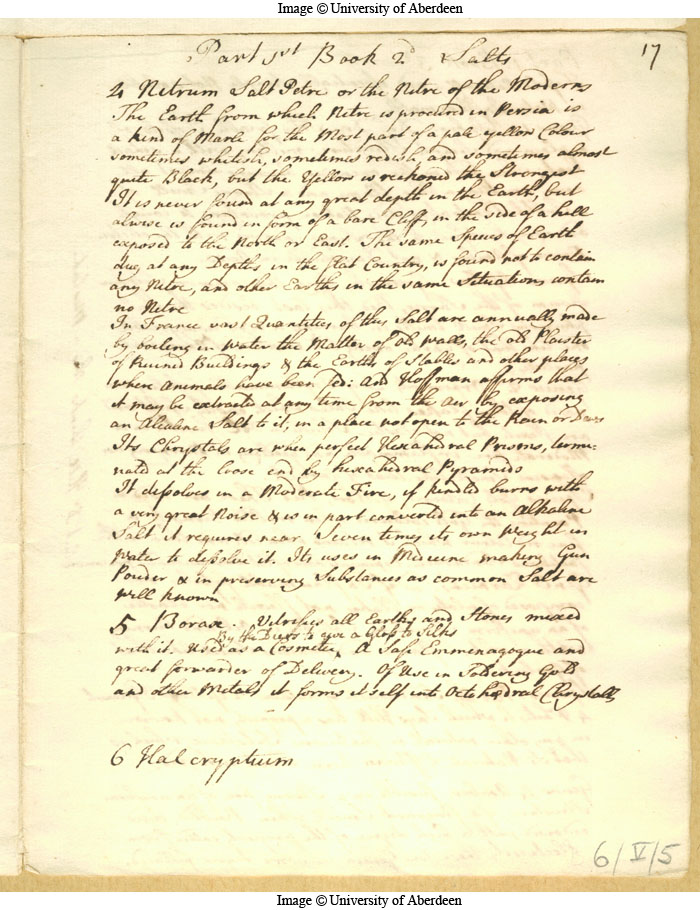 Image © University of Aberdeen
Part 1st Book 2d Salts
17
4 Nitrum Salt Petre or the Nitre of the Moderns
The Earth from which Nitre is procured in Persia is
a kind of Marle for the Most part of a pale yellow Colour
sometimes whitish, sometimes redish, and sometimes almost
quite Black, but the Yellow is reckoned the Strongest
It is never found at any great depth in the Earth, but
alwise is found in form of a bare Cliff, in the side of a hill
exposed to the North or East. The same Species of Earth
dug at any Depths in the flat Country, is found not to contain
any Nitre, and other Earths in the same Situations contain
no Nitre
In France vast Quantities of this Salt are annually made
by boiling in water the Matter of old walls, the old Plaister
of Ruined Buildings & the Earths of Stables and other places
where animals have been fed: And Hoffman affirms that
it may be extracted at any time from the air by exposing
an Alcaline Salt to it, in a place not open to the Rain or Dews
Its Chrystals are when perfect Hexahedral Prisms, termi-
nated at the loose end by hexahedral Pyramids
It dissolves in a Moderate Fire, if kindled burns with
a very great Noise & is in part converted into an Alkaline
Salt it requires near Seven times its own Weight in
Water to dissolve it. Its uses in Medicine making Gun
Powder & in preserving Substances as common Salt are
well known
5 Borax. Vitrifies all Earths and Stones mixed
By the Diers to give a Gloss to Silks
with it. Used as a Cosmetic, A Safe Emmenagogue and
great forwarder of Delivery. Of Use in Sodering Gold
and other Metals it forms it self into Octohedral Chrystalls
6 Halcryptium
6/V/5
Image © University of Aberdeen